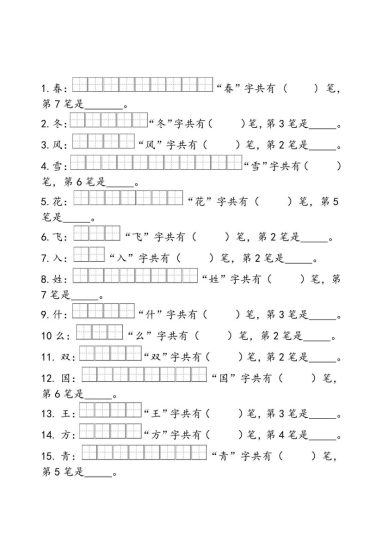 1. 春：“春”字共有（  ）笔，
第 7 笔是_____。
2. 冬：“冬”字共有（  ）笔，第 3 笔是____。
3. 风：“风”字共有（  ）笔，第 2 笔是____。
4. 雪：“雪”字共有（  ）
笔，第 6 笔是____。
5. 花：“花”字共有（  ）笔，第 5
笔是____。
6. 飞：“飞”字共有（  ）笔，第 2 笔是____。
7. 入：“入”字共有（  ）笔，第 2 笔是____。
8. 姓：“姓”字共有（  ）笔，第
7 笔是____。
9. 什：“什”字共有（  ）笔，第 3 笔是____。
10 么：“么”字共有（  ）笔，第 2 笔是____。
11. 双：“双”字共有（  ）笔，第 2 笔是____。
12. 国：“国”字共有（  ）笔，
第 6 笔是____。
13. 王：“王”字共有（  ）笔，第 3 笔是____。
14. 方：“方”字共有（  ）笔，第 4 笔是____。
15. 青：“青”字共有（  ）笔，
第 5 笔是____。